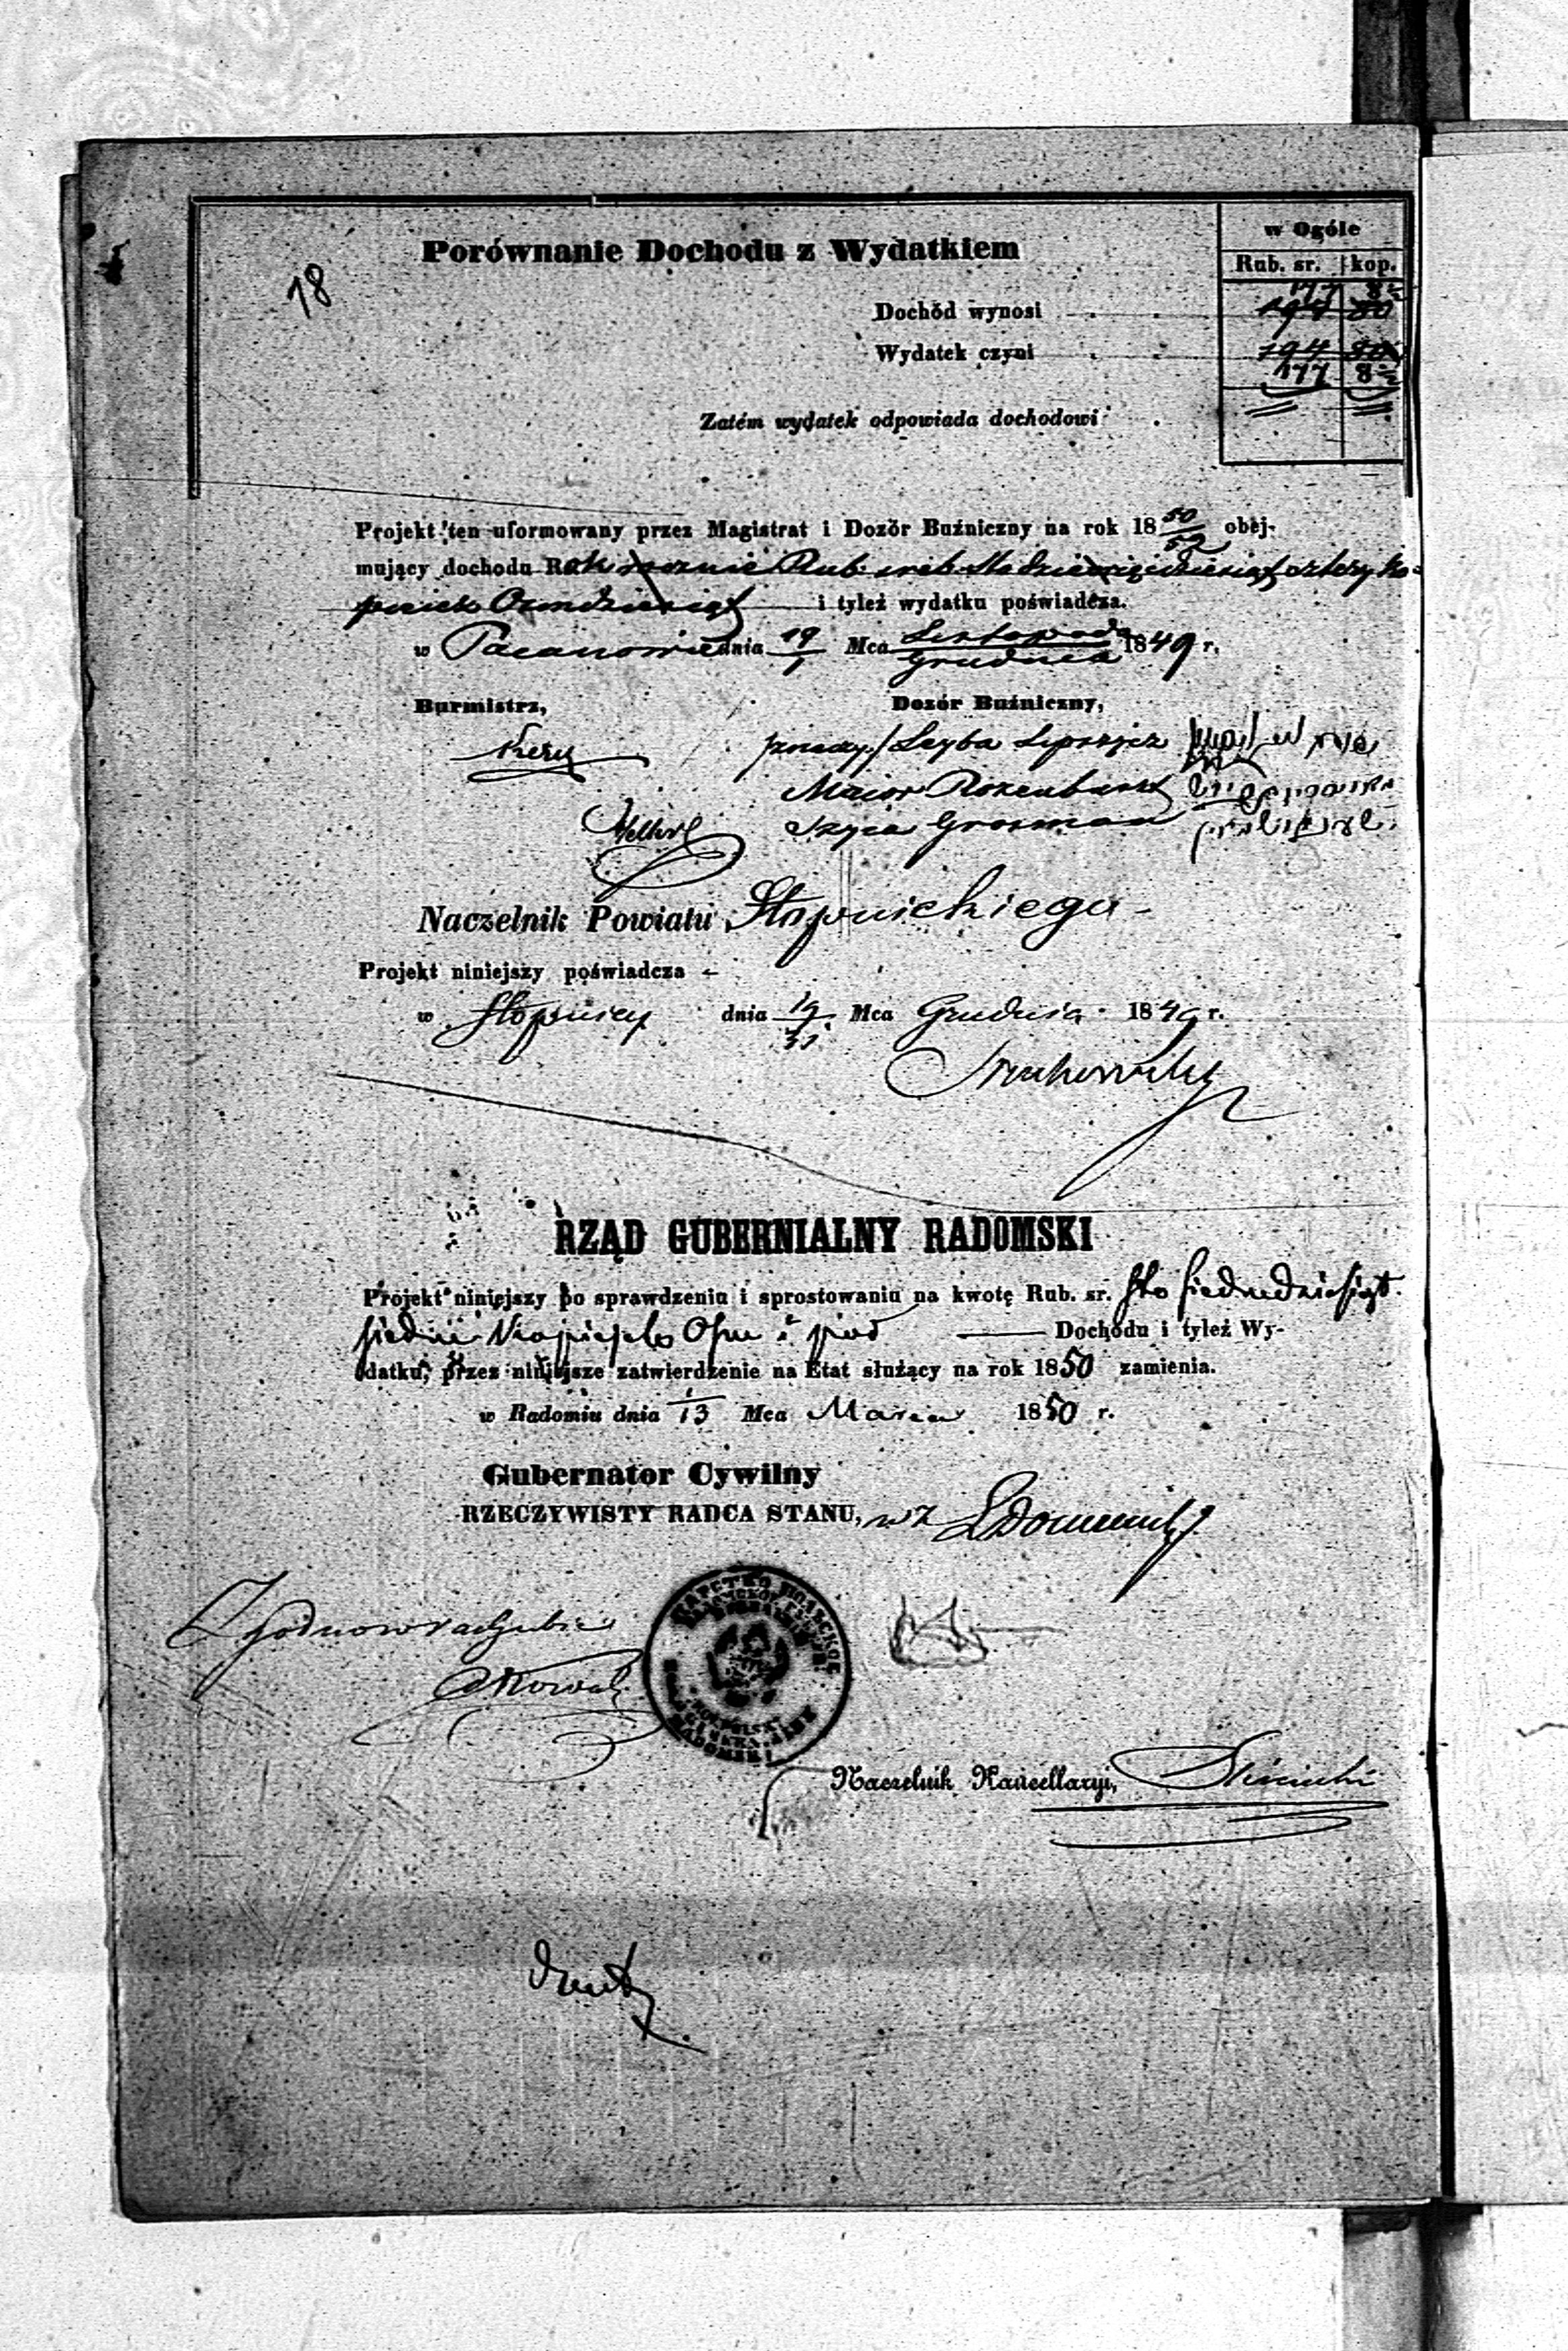 18
Porównanie Dochodu z Wydatkiem
w Ogóle
Rub. sr. kop.
177 8½
Dochód wynosi 194 80
Wydatek czyni 194 80
177 8½
Zatém wydatek odpowiada dochodowi
Projekt ten uformowany przez Magistrat i Dozór Buźniczny na rok 1850/52 obej-
mujący dochodu Rocznie Rub sreb Sto dziewięćdziesiąt cztery ko-
piejek Ośmdziesiąt i tyleż wydatku poświadcza.
w Pacanowie dnia 19/1 Mca Listopada/Grudnia 1849 r.
Burmistrz,
Dozór Buźniczny,
Leyba Lipszyc
Maior Rozenburk
Szyia Grosman
Naczelnik Powiatu Stopnickiego
Projekt niniejszy poświadcza
w Stopnicy dnia 19/31 Mca Grudnia 1849 r.
RZĄD GUBERNIALNY RADOMSKI
Projekt niniejszy po sprawdzeniu i sprostowaniu na kwotę Rub. sr. sto siedmdziesiąt
siedm kopiejek Ośm i pół Dochodu i tyleż Wy-
datku, przez niniejsze zatwierdzenie na Etat służący na rok 1850 zamienia.
w Radomiu dnia 1/13 Mca Marca 1850 r.
Gubernator Cywilny
RZECZYWISTY RADCA STANU, wz
Naczelnik Kancellaryi,